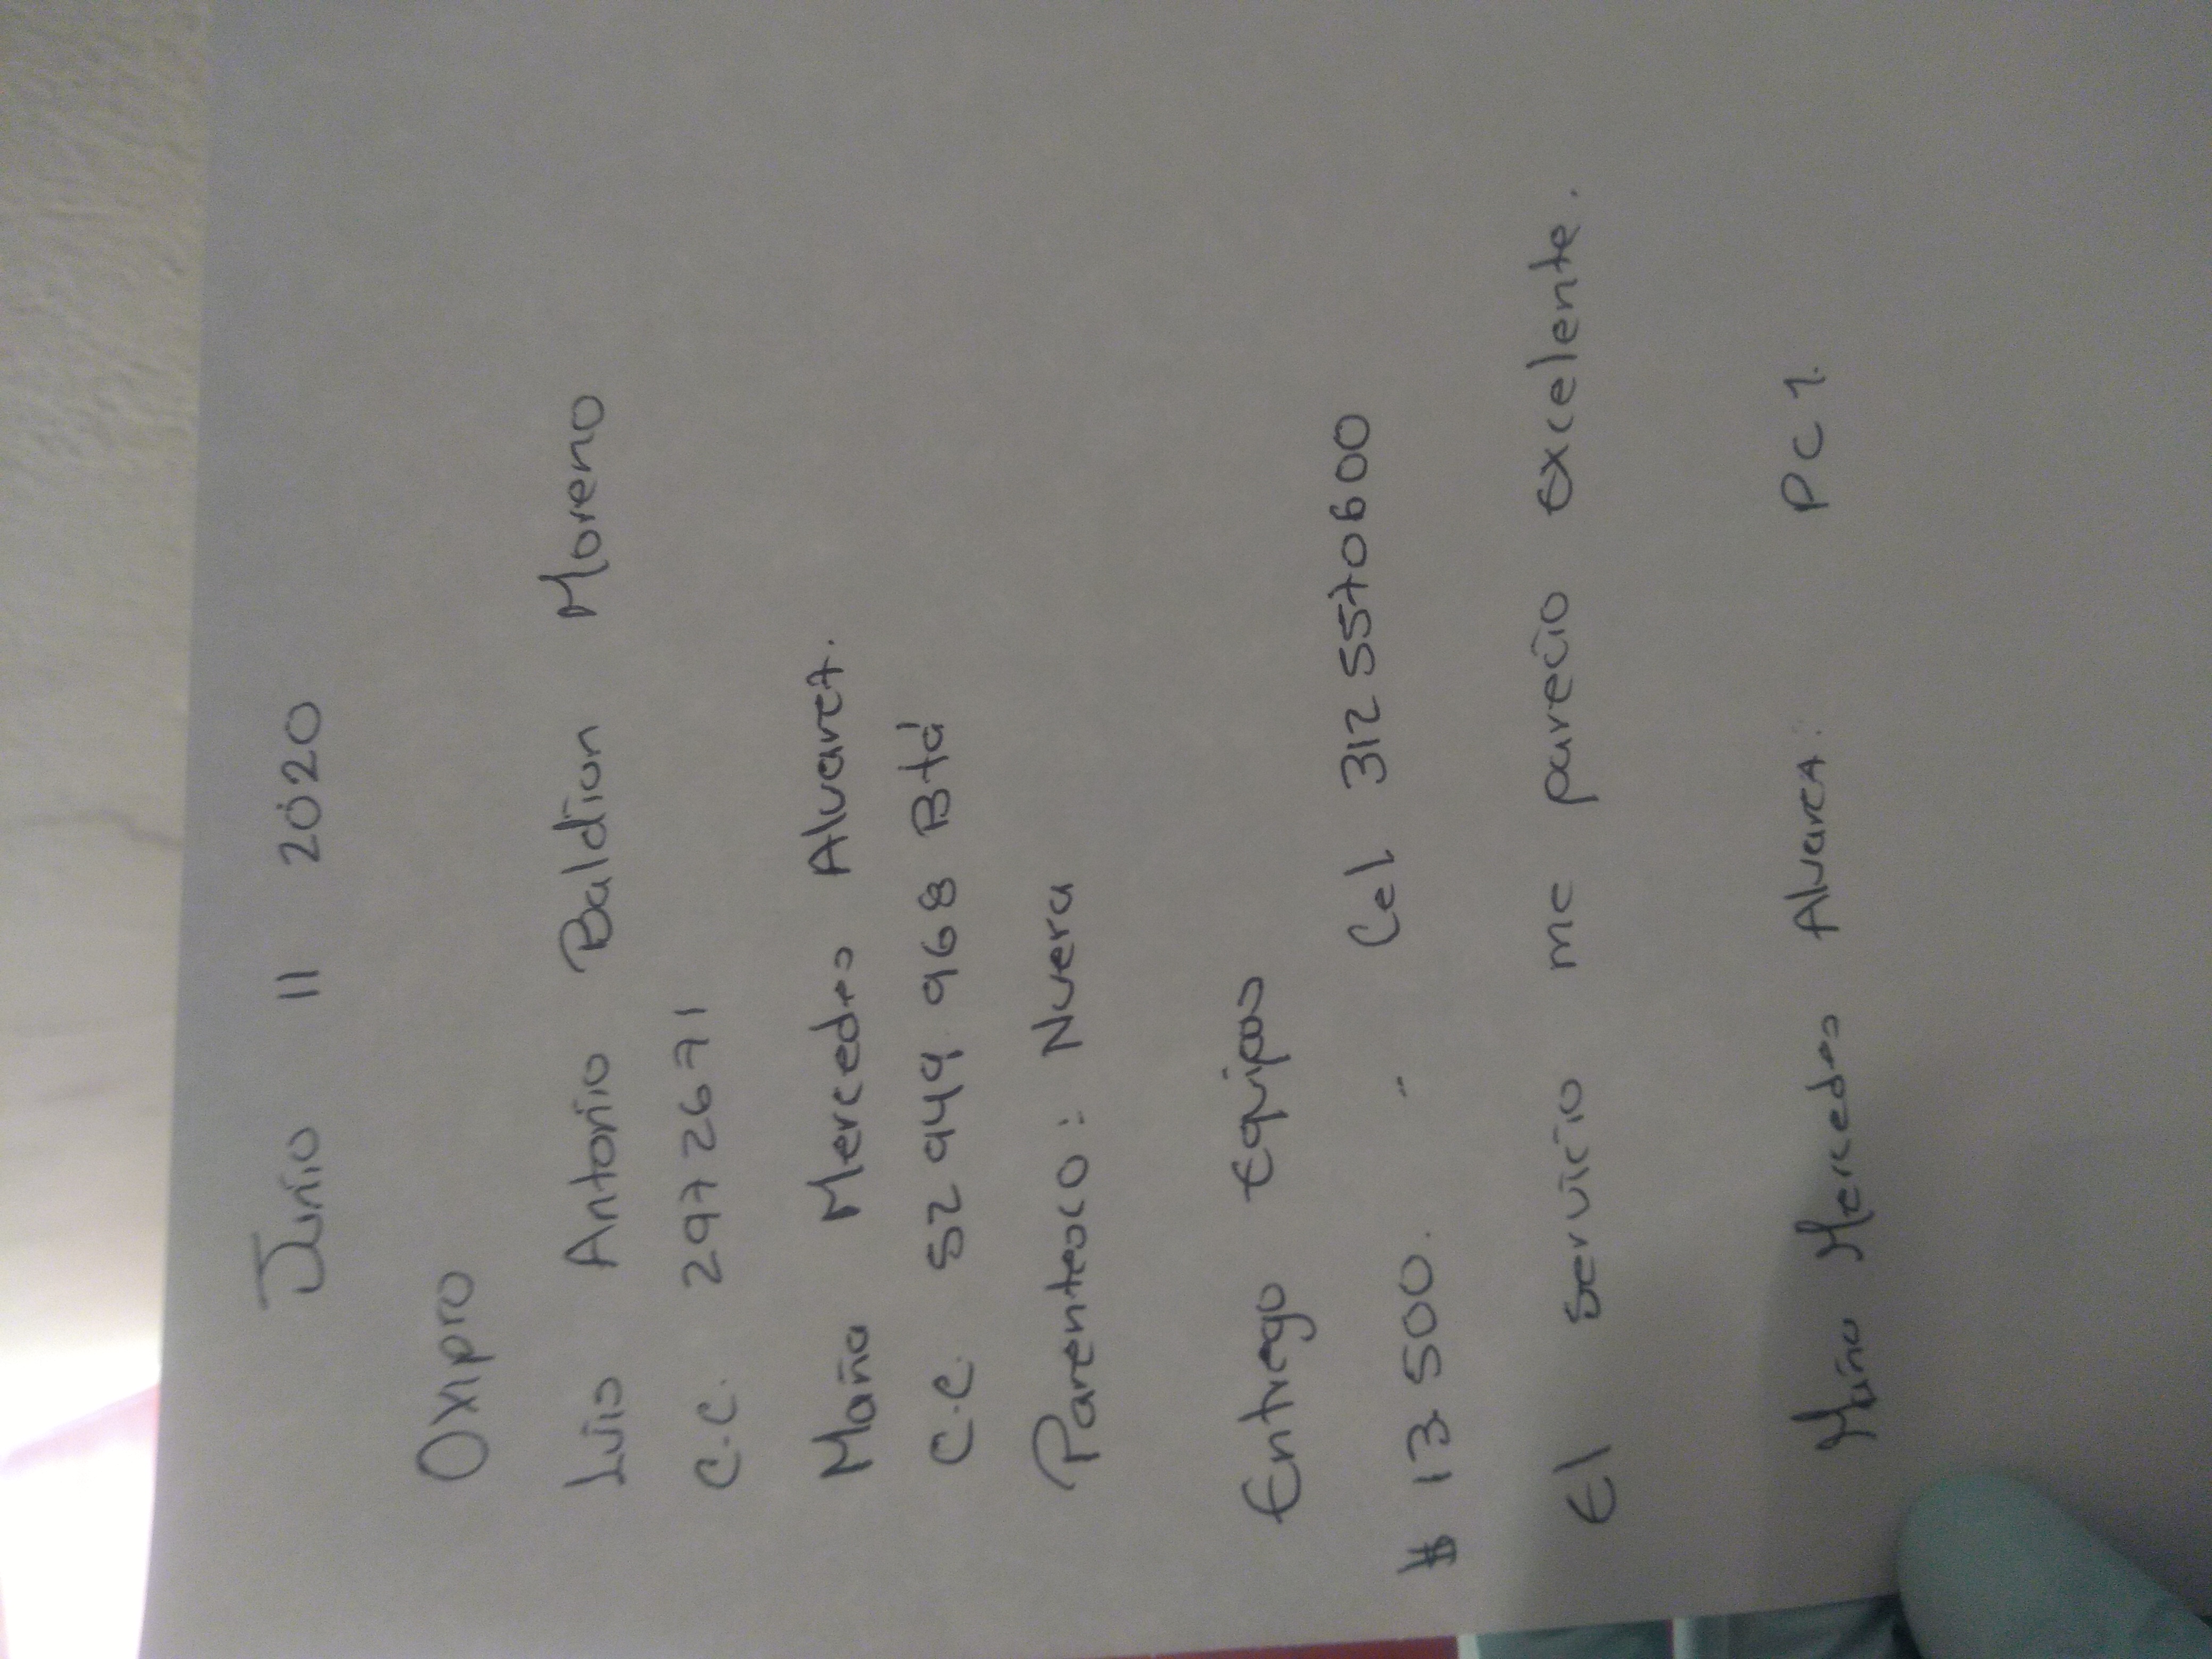 Junio 11 2020
Oxipro
Luis Antonio Baldion Moreno
C.C. 2972671
Maria Mercedes Alvarez.
C.C. 52 949 968 Btá
Parentesco: Nuera
Entrego Equipos
Cel 312 5570600
$ 13.500.
El servicio me parecio excelente.
Maria Mercedes Alvarez. PC 1.